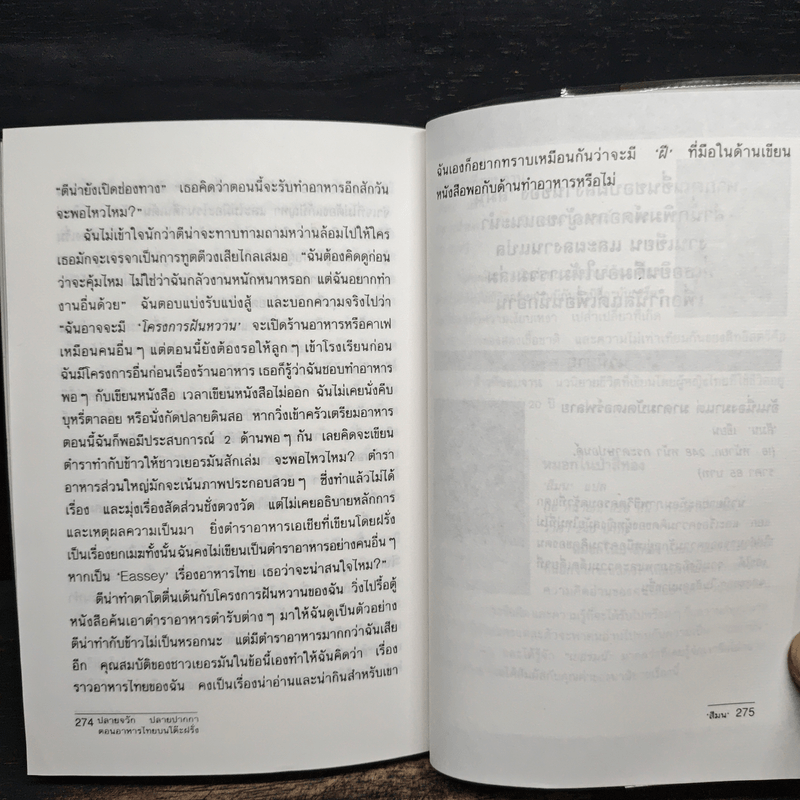 "ตีน่ายังเปิดช่องทาง" เธอคิดว่าตอนนี้จะรับทำอาหารอีกสักวัน
จะพอไหวไหม?"
ฉันไม่เข้าใจนักว่าตีน่าจะทาบทามถามหว่านล้อมไปให้ใคร
เธอมักจะเจรจาเป็นการทูตตีวงเสียไกลเสมอ "ฉันต้องคิดดูก่อน
ว่าจะคุ้มไหม ไม่ใช่ว่าฉันกลัวงานหนักหนาหรอก แต่ฉันอยากทำ
งานอื่นด้วย" ฉันตอบแบ่งรับแบ่งสู้ และบอกความจริงไปว่า
"ฉันอาจจะมี 'โครงการฝันหวาน' จะเปิดร้านอาหารหรือคาเฟ
เหมือนคนอื่น ๆ แต่ตอนนี้ยังต้องรอให้ลูก ๆ เข้าโรงเรียนก่อน
ฉันมีโครงการอื่นก่อนเรื่องร้านอาหาร เธอก็รู้ว่าฉันชอบทำอาหาร
พอ ๆ กับเขียนหนังสือ เวลาเขียนหนังสือไม่ออก ฉันไม่เคยนั่งคีบ
บุหรี่ตาลอย หรือนั่งกัดปลายดินสอ หากวิ่งเข้าครัวเตรียมอาหาร
ตอนนี้ฉันก็พอมีประสบการณ์ 2 ด้านพอ ๆ กัน เลยคิดจะเขียน
ตำราทำกับข้าวให้ชาวเยอรมันสักเล่ม จะพอไหวไหม? ตำรา
อาหารส่วนใหญ่มักจะเน้นภาพประกอบสวย ๆ ซึ่งทำแล้วไม่ได้
เรื่อง และมุ่งเรื่องสัดส่วนชั่งตวงวัด แต่ไม่เคยอธิบายหลักการ
และเหตุผลความเป็นมา ยิ่งตำราอาหารเอเชียที่เขียนโดยฝรั่ง
เป็นเรื่องยกเมฆทั้งนั้นฉันคงไม่เขียนเป็นตำราอาหารอย่างคนอื่น ๆ
หากเป็น 'Eassey' เรื่องอาหารไทย เธอว่าจะน่าสนใจไหม?"
ตีน่าทำตาโตตื่นเต้นกับโครงการฝันหวานของฉัน วิ่งไปรื้อตู้
หนังสือค้นเอาตำราอาหารตำรับต่าง ๆ มาให้ฉันดูเป็นตัวอย่าง
ตีน่าทำกับข้าวไม่เป็นหรอกนะ แต่มีตำราอาหารมากกว่าฉันเสีย
อีก คุณสมบัติของชาวเยอรมันในข้อนี้เองทำให้ฉันคิดว่า เรื่อง
ราวอาหารไทยของฉัน คงเป็นเรื่องน่าอ่านและน่ากินสำหรับเขา
274 ปลายจวัก ปลายปากกา
ตอนอาหารไทยบนโต๊ะฝรั่ง
ฉันเองก็อยากทราบเหมือนกันว่าจะมี 'ฝี' ที่มือในด้านเขียน
หนังสือพอกับด้านทำอาหารหรือไม่
'สีมน' 275